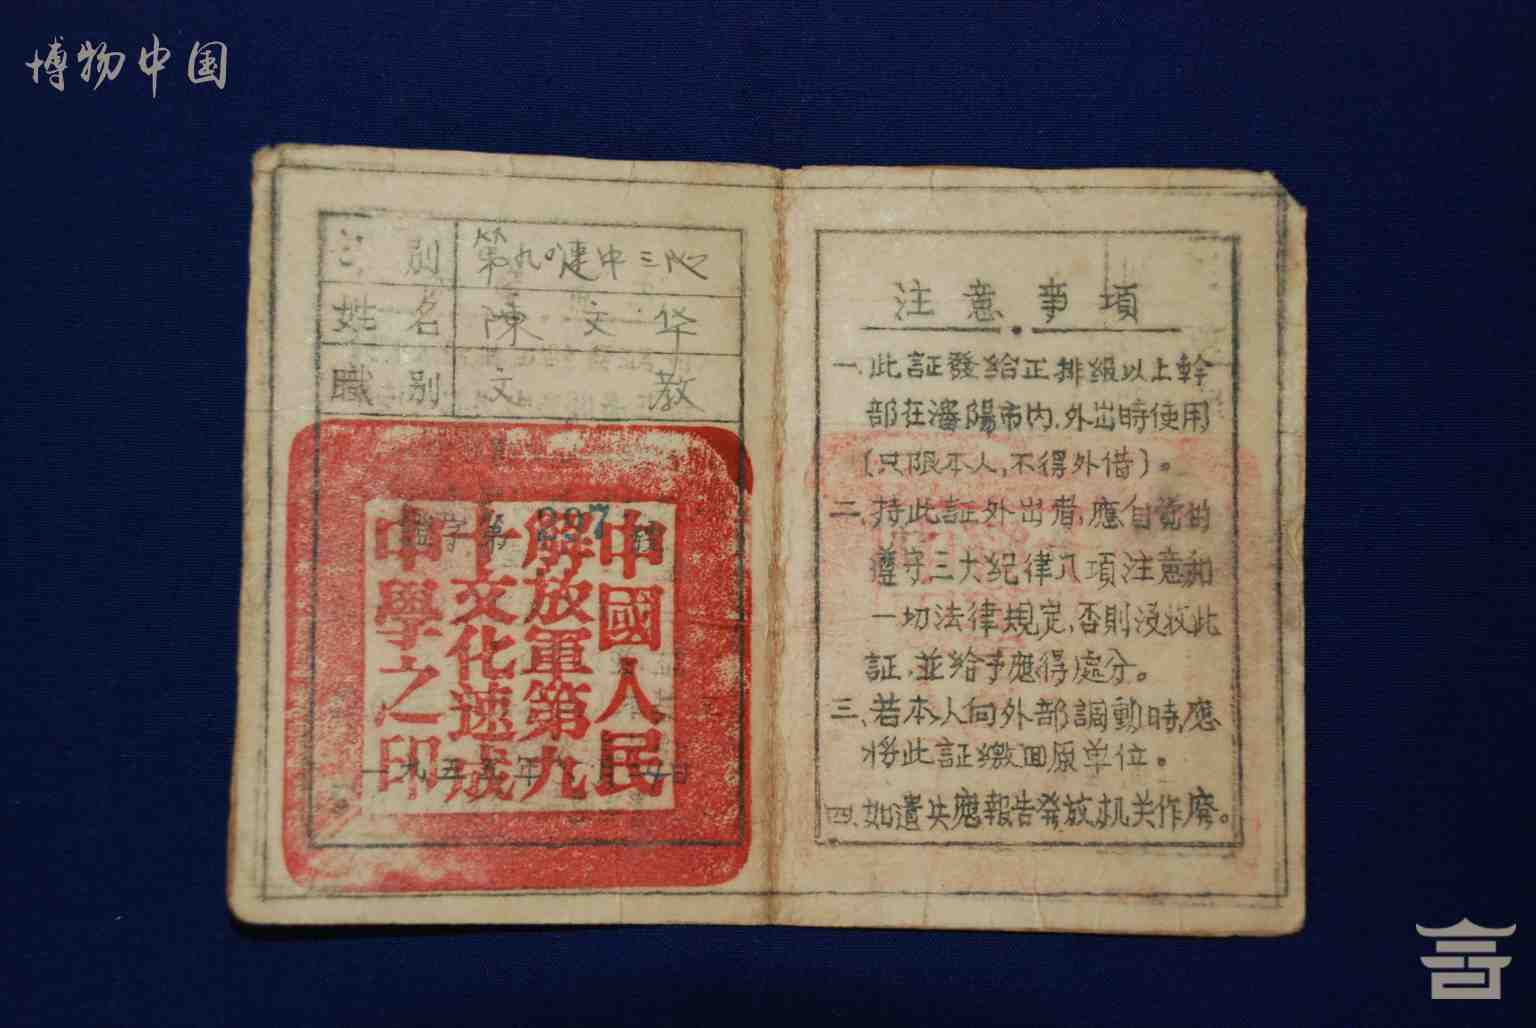 博物中国
别 第九速中三
姓名 陳文华
職别 文教
證字第 227 號
中國人民
解放軍第九
十文化速成
中學之印
一九五五年 月 日
注意事項
一、此証發給正排級以上幹
部在瀋陽市内、外出時使用
(只限本人,不得外借)。
二、持此証外出者,應自覺的
遵守三大纪律八項注意和
一切法律規定,否則没收此
証,並給予應得處分。
三、若本人向外部調動時,應
將此証繳回原单位。
四、如遺失應報告發放机关作廢。